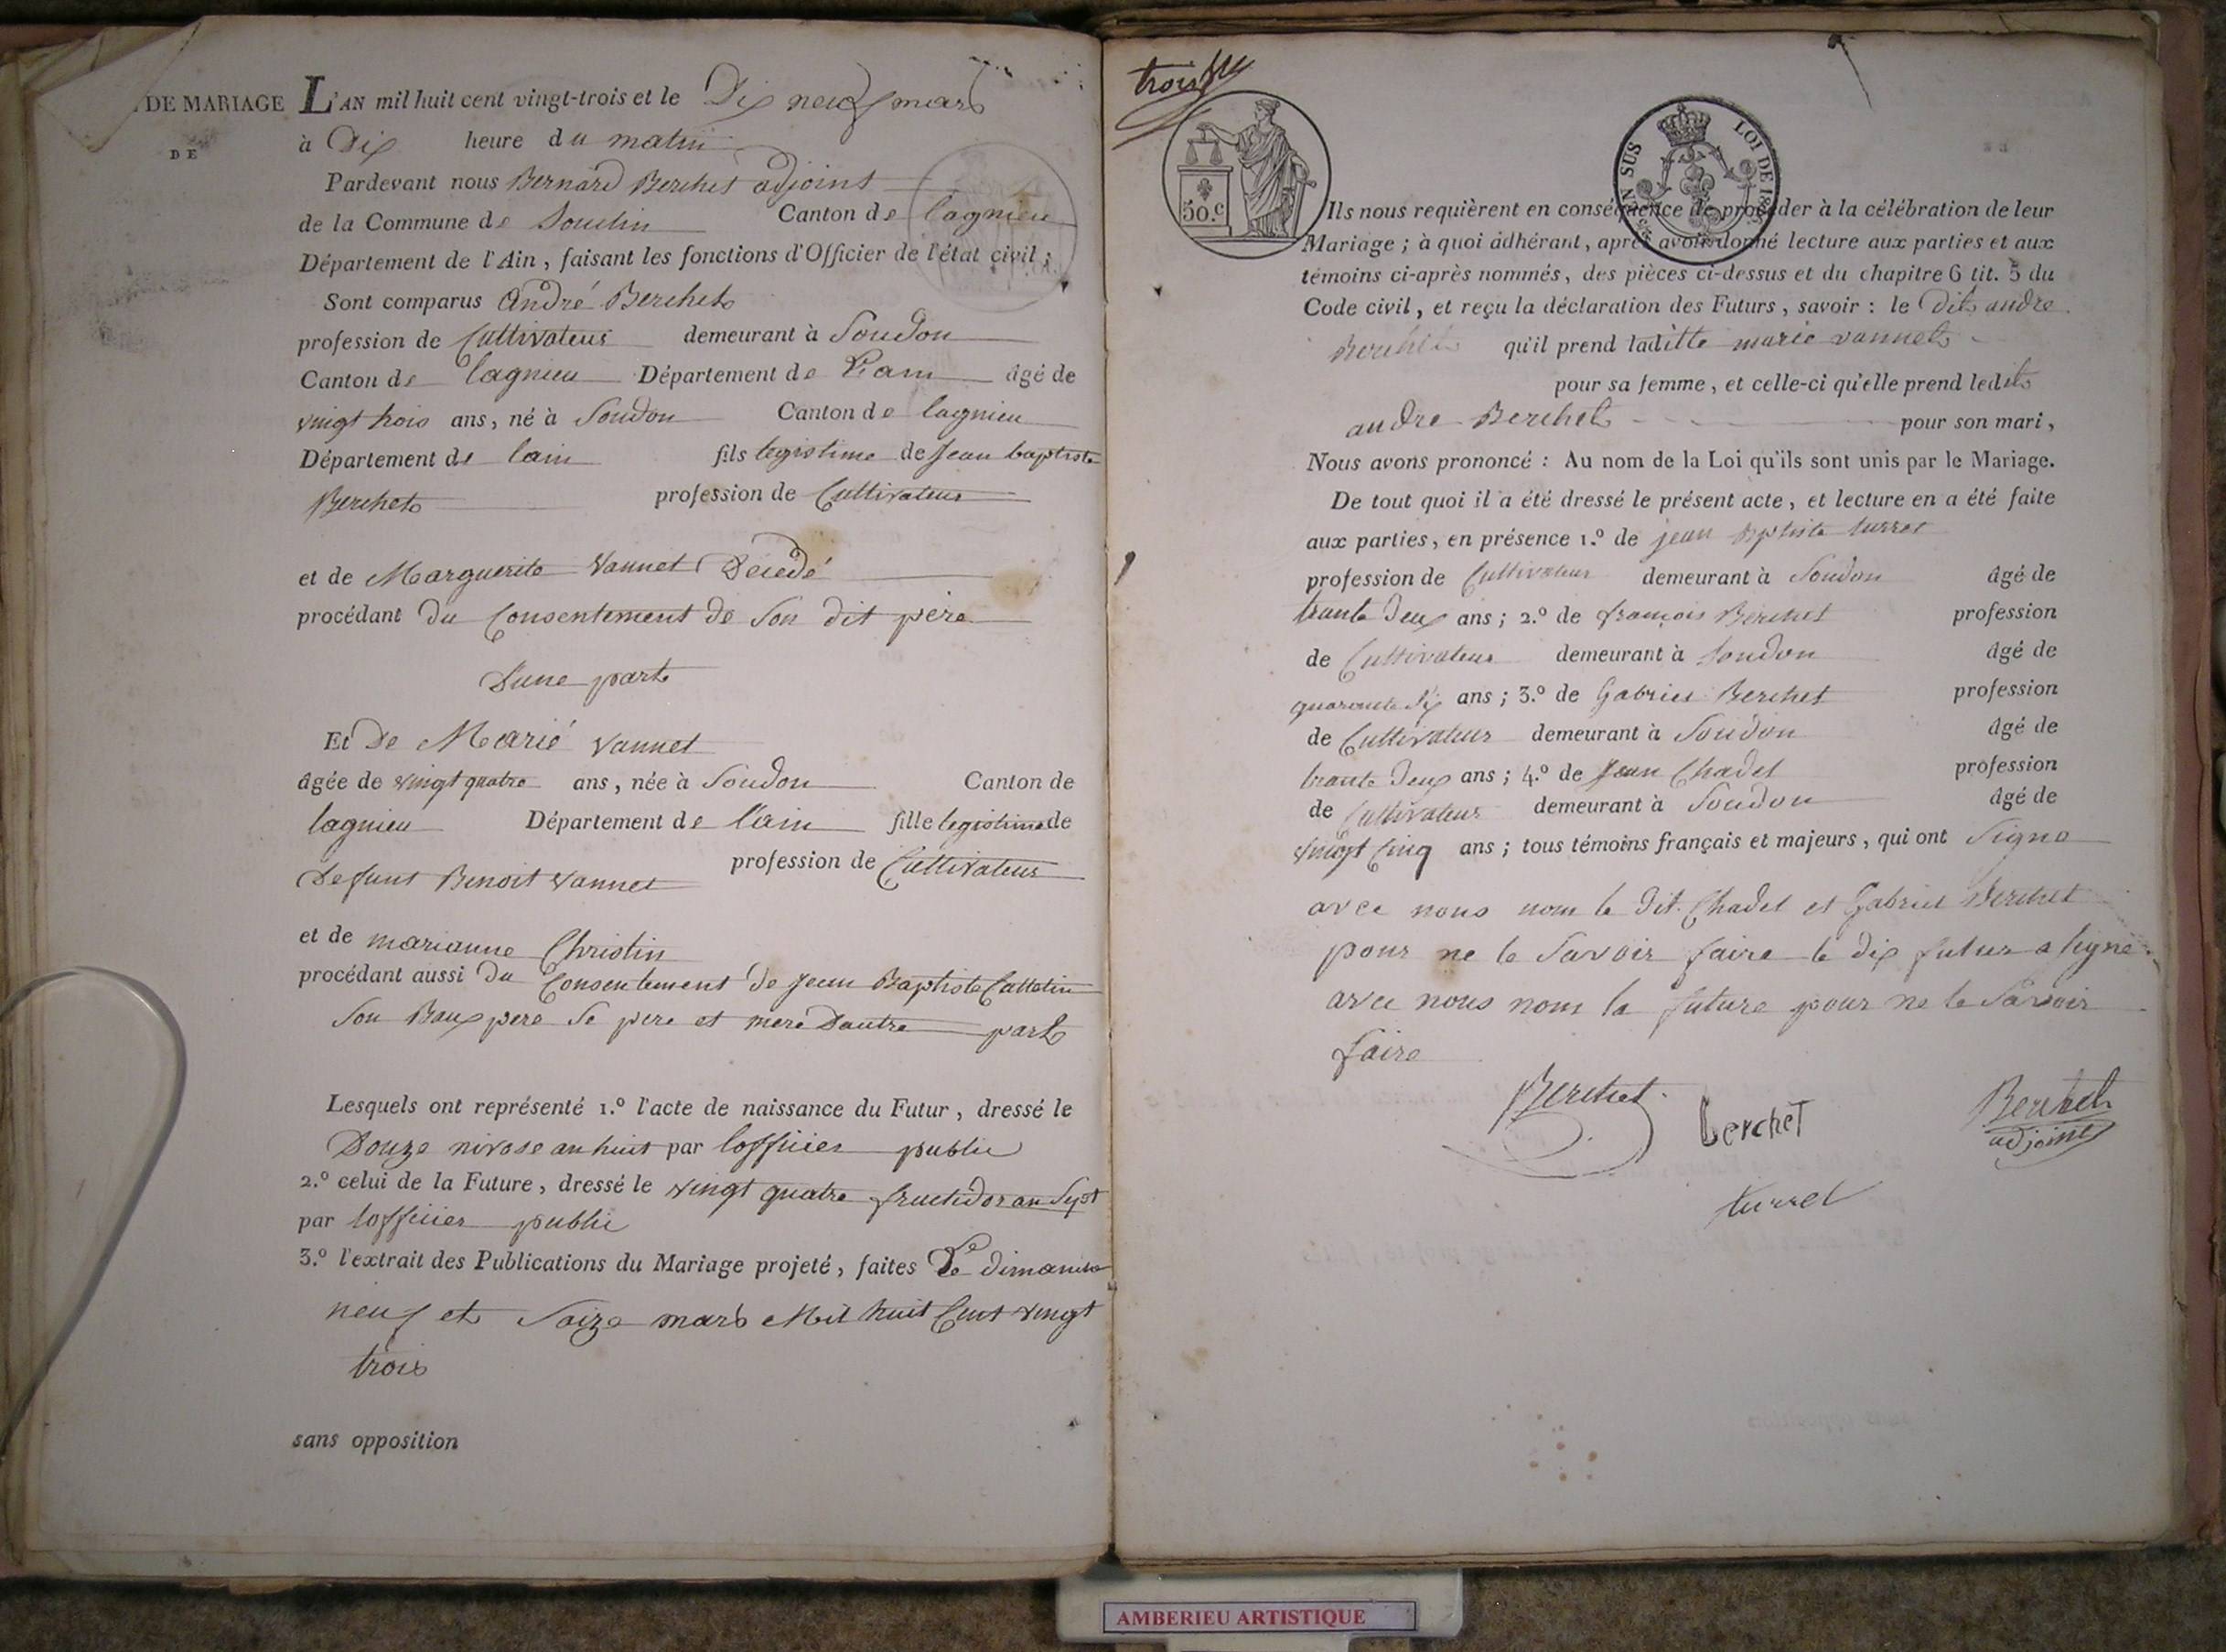 DE MARIAGE
DE
L'AN mil huit cent vingt-trois et le Dix neuf mars
à Dix heure du matin
Pardevant nous Bernard Berchet adjoint
de la Commune de Soudin Canton de lagnieu
Département de l'Ain, faisant les fonctions d'Officier de l'état civil;
Sont comparus André Berchet
profession de Cultivateur demeurant à Soudon
Canton de lagnieu Département de L'ain âgé de
vingt trois ans, né à Soudon Canton de lagnieu
Département de lain fils legistime de Jean baptiste
Berchet profession de Cultivateur
et de Marguerite Vannet Décedé
procédant du Consentement de Son dit père
D'une part
Et De Marie Vannet
âgée de vingt quatre ans, née à Soudon Canton de
lagnieu Département de l'ain fille legistime de
Defunt Benoit Vannet profession de Cultivateur
et de marianne Christin
procédant aussi du Consentement de Jean Baptiste Cattetin
Son Baux pere Se pere et mere D'autre part
Lesquels ont représenté 1.º l'acte de naissance du Futur, dressé le
Douze nivose an huit par lofficier public
2.º celui de la Future, dressé le vingt quatre fructidor an Sept
par lofficier public
3.º l'extrait des Publications du Mariage projeté, faites Le dimanche
neuf et Saize mars Mil huit Cent vingt
trois
sans opposition
trois
50.c
LOI DE
EN SUS
Ils nous requièrent en conséquence de procéder à la célébration de leur
Mariage; à quoi adhérant, après avoir donné lecture aux parties et aux
témoins ci-après nommés, des pièces ci-dessus et du chapitre 6 tit. 5 du
Code civil, et reçu la déclaration des Futurs, savoir: le dit andre
Berchet qu'il prend laditte marie vannet
pour sa femme, et celle-ci qu'elle prend ledit
andre Berchet pour son mari,
Nous avons prononcé: Au nom de la Loi qu'ils sont unis par le Mariage.
De tout quoi il a été dressé le présent acte, et lecture en a été faite
aux parties, en présence 1.º de jean Bptiste turret
profession de Cultivateur demeurant à Soudon âgé de
trante Deux ans; 2.º de françois Berchet profession
de Cultivateur demeurant à Soudon âgé de
quarante Six ans; 3.º de Gabriel Berchet profession
de Cultivateur demeurant à Soudon âgé de
trante Deux ans; 4.º de Jean Chadel profession
de Cultivateur demeurant à Soudon âgé de
vingt Cinq ans; tous témoins français et majeurs, qui ont Signe
avec nous nom le dit Chadel et Gabriel Berchet
pour ne le Savoir faire le dix futur a Signe
avec nous nom la future pour ne le Savoir
faire
Berchet
berchet
Berchet
adjoint
turrel
AMBERIEU ARTISTIQUE